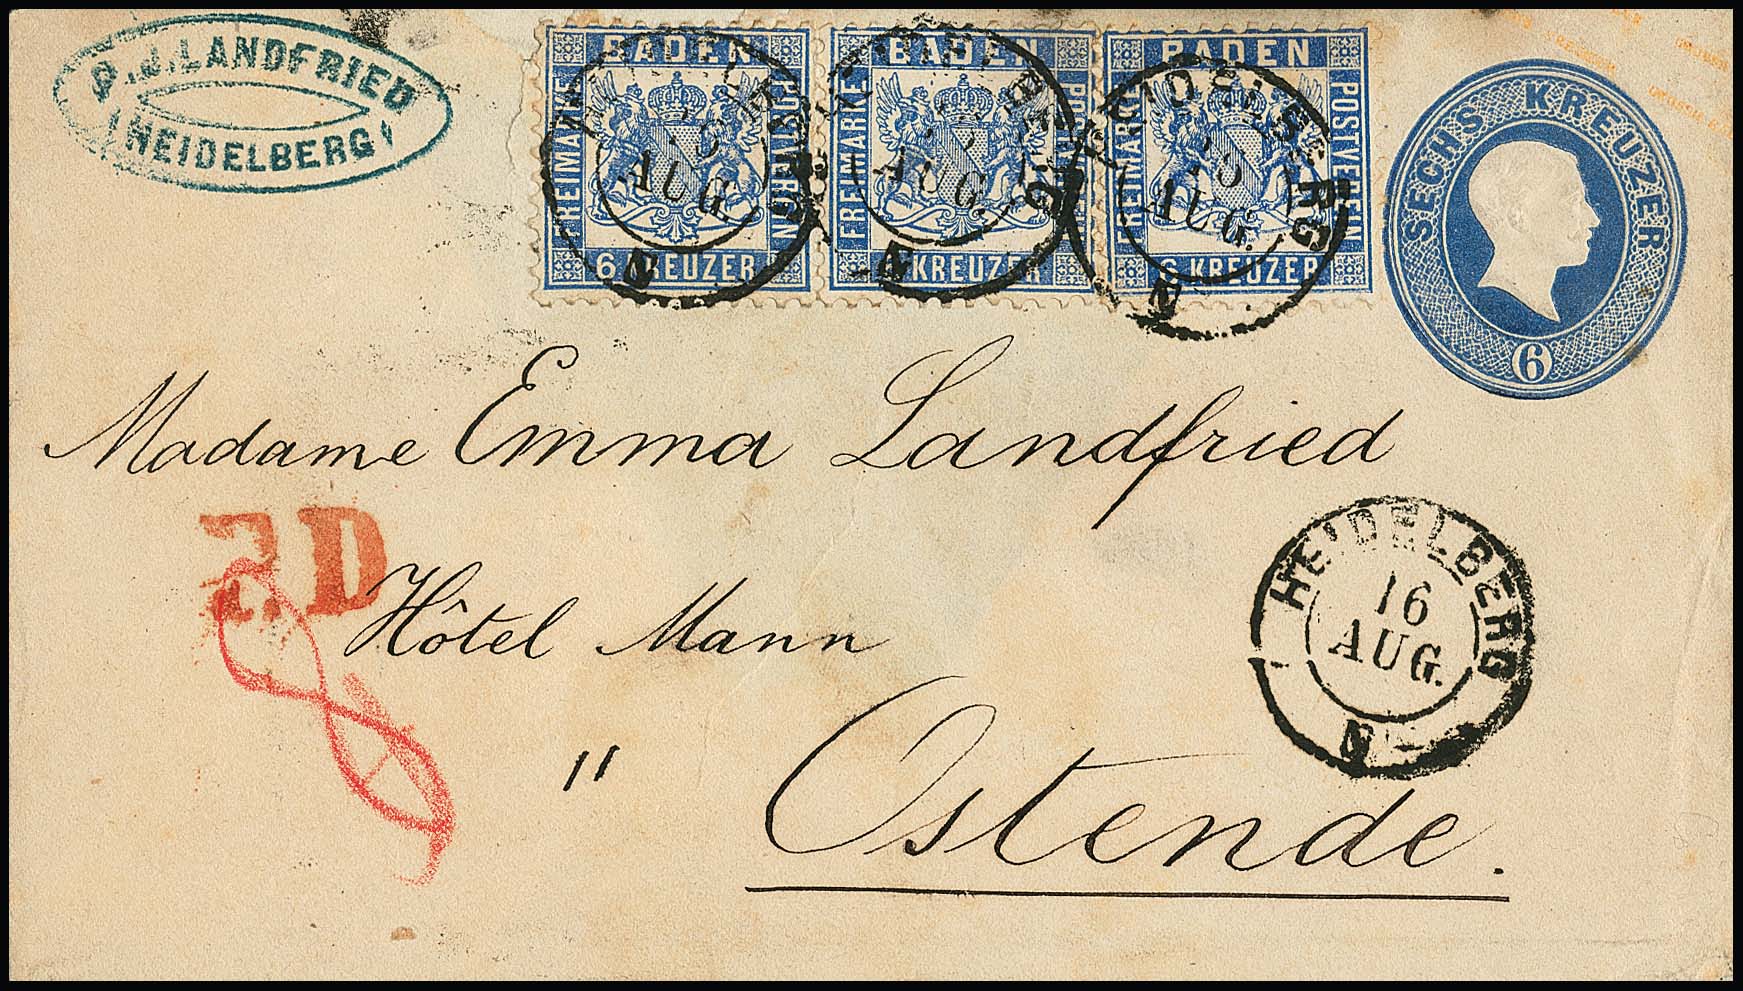 P. J. LANDFRIED
HEIDELBERG
BADEN
FREIMARKE
POSTVEREIN
6 KREUZER
BADEN
FREIMARKE
KREUZER
BADEN
FREIMARKE
POSTVEREIN
6 KREUZER
HEIDELBERG
AUG.
N
HEIDELBERG
AUG.
N
HEIDELBERG
AUG.
N
SECHS KREUZER
6
Madame Emma Landfried
P.D
HEIDELBERG
16
AUG.
N
Hôtel Mann
"
Ostende.